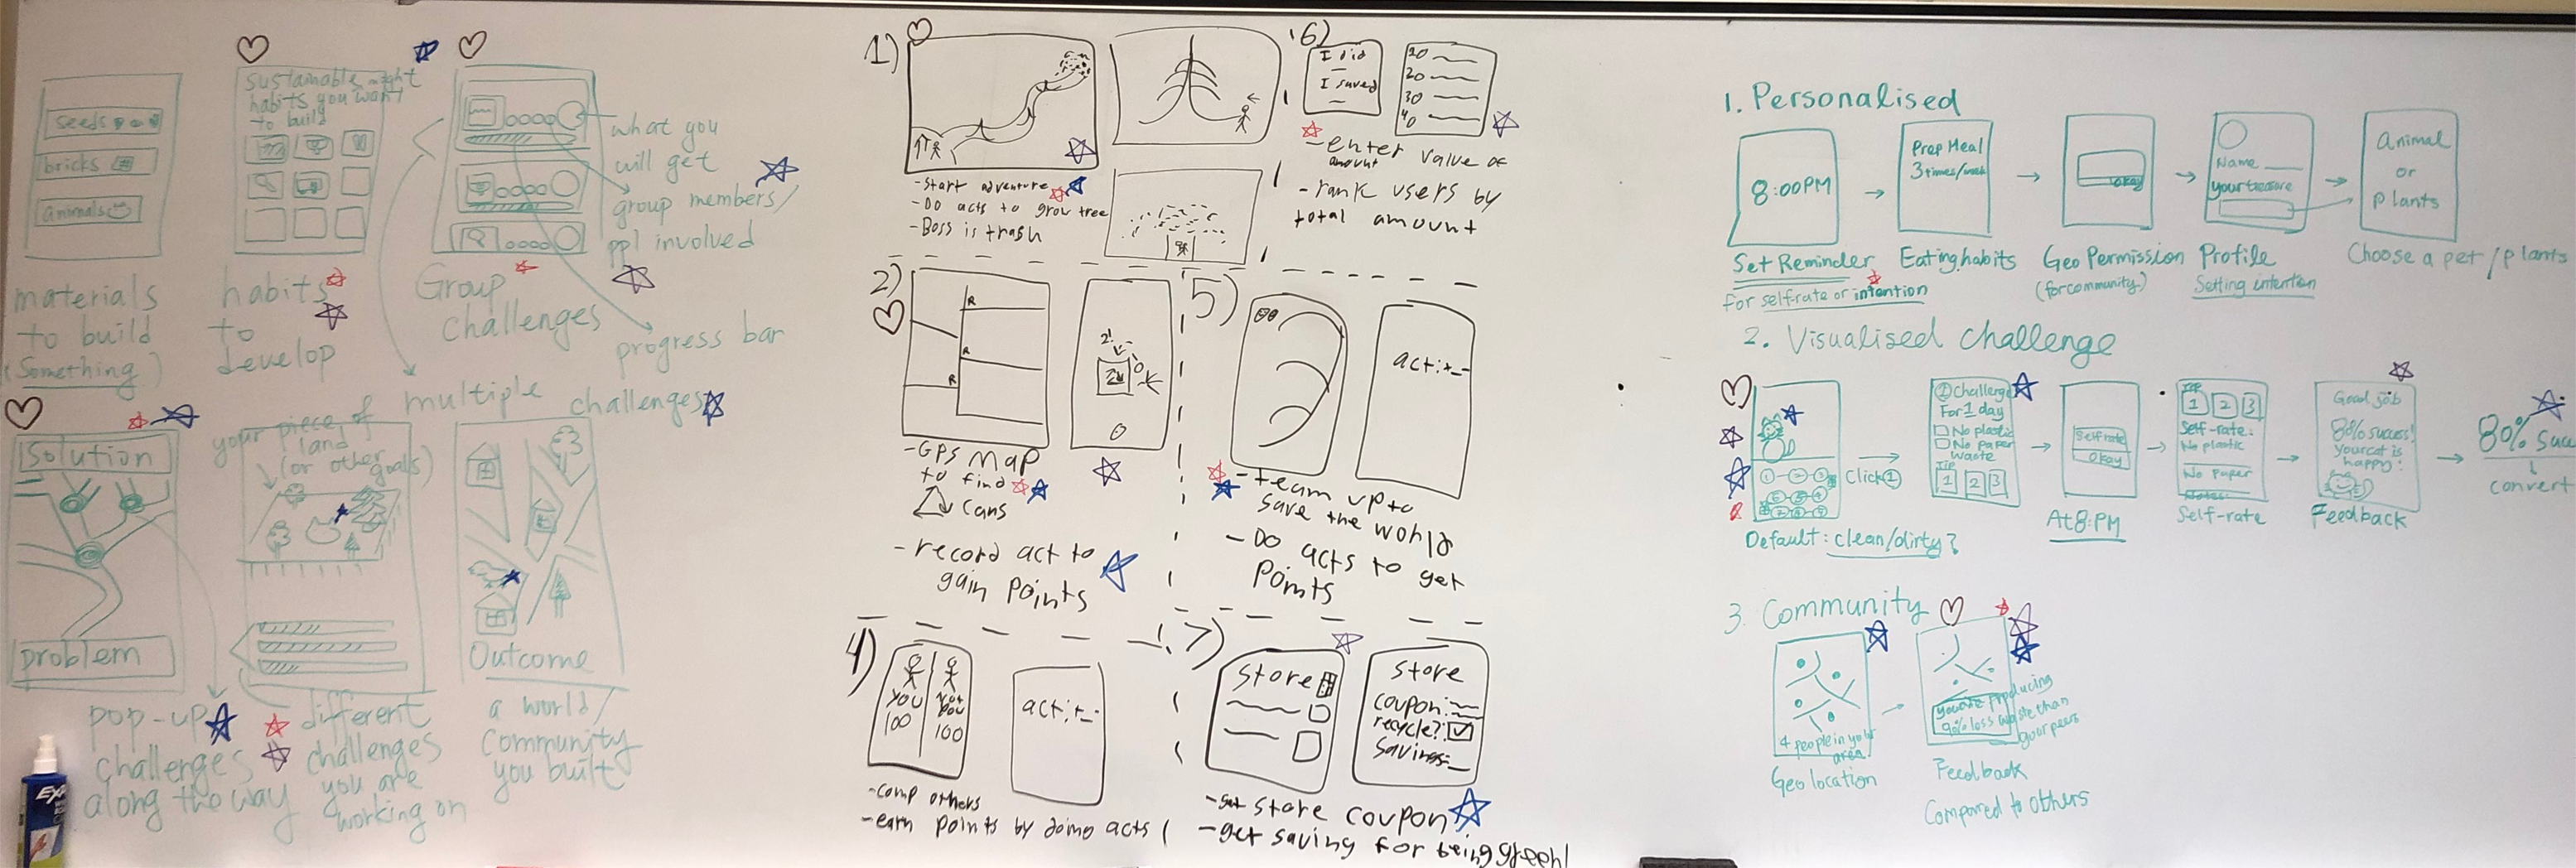 seeds
bricks
animals
materials
to build
(Something)
sustainable might
habits you want
to build
habits
to
develop
what you
will get
group members/
ppl involved
progress bar
Group
challenges
multiple challenges
Solution
problem
pop-up
challenges
along the way
your piece of
land
(or other
goals)
different
challenges
you are
working on
Outcome
a world/
community
you built
EXP
1)
-start adventure
-Do acts to grow tree
-Boss is trash
2)
R
R
R
-GPS map
to find
cans
-record act to
gain points
4)
you
100
Not
you
100
act:+_-
-comp others
-earn points by doing acts
5)
act:+_-
-team up to
save the world
-Do acts to get
points
6)
I did
I saved
10
20
30
40
-enter value of
amount
-rank users by
total amount
7)
Store
Store
coupon:
recycle?:
Savings:
store coupon
-get saving for being green!
1. Personalised
8:00PM
Set Reminder
for self-rate or intention
Prep Meal
3 times/week
Eating habits
okay
Geo Permission
(for community)
Name
your treasure
Profile
Setting intention
Animal
or
plants
Choose a pet/plants
2. Visualised challenge
Click ①
Default: clean/dirty?
① Challenge
For 1 day
No plastic
No paper
waste
Tip
1 2 3
Self rate
okay
At 8:PM
Tip
1 2 3
Self-rate:
No plastic
No paper
Notes:
Self-rate
Good job
80% success!
your cat is
happy!
Feedback
80% suc
convert
3. Community
4 people in your
area.
Geo location
you are producing
90% less waste than
your peers
Feedback
Compared to others